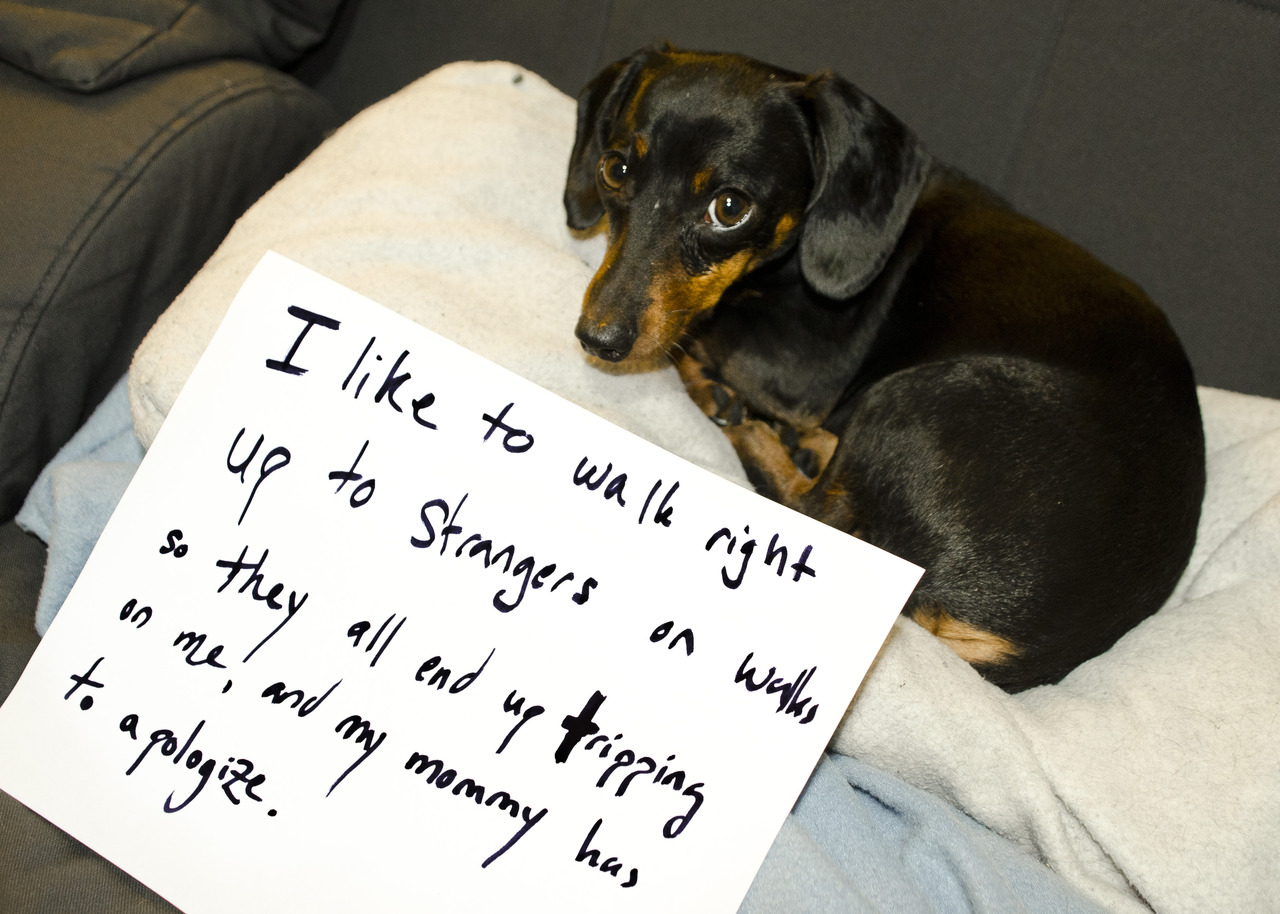 I like to walk right
up to Strangers on walks
so they all end up tripping
on me, and my mommy has
to apologize.